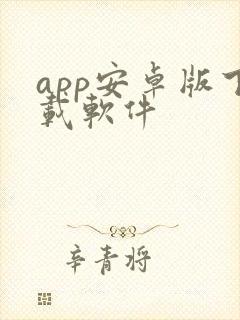 app安卓版下
载软件
辛青将